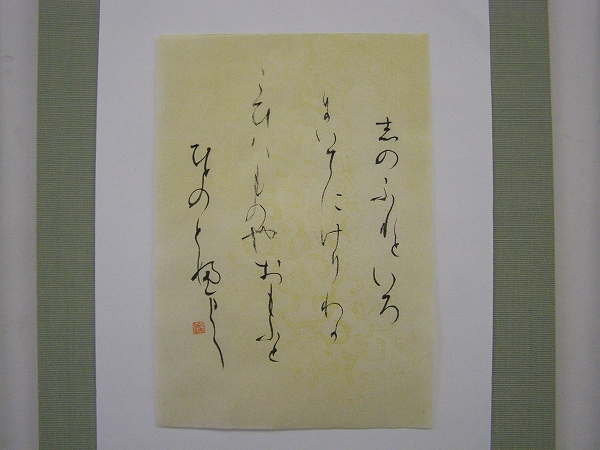 志のふれといろ
にいてにけりわか
こひハものやおもふと
ひとのとふまて